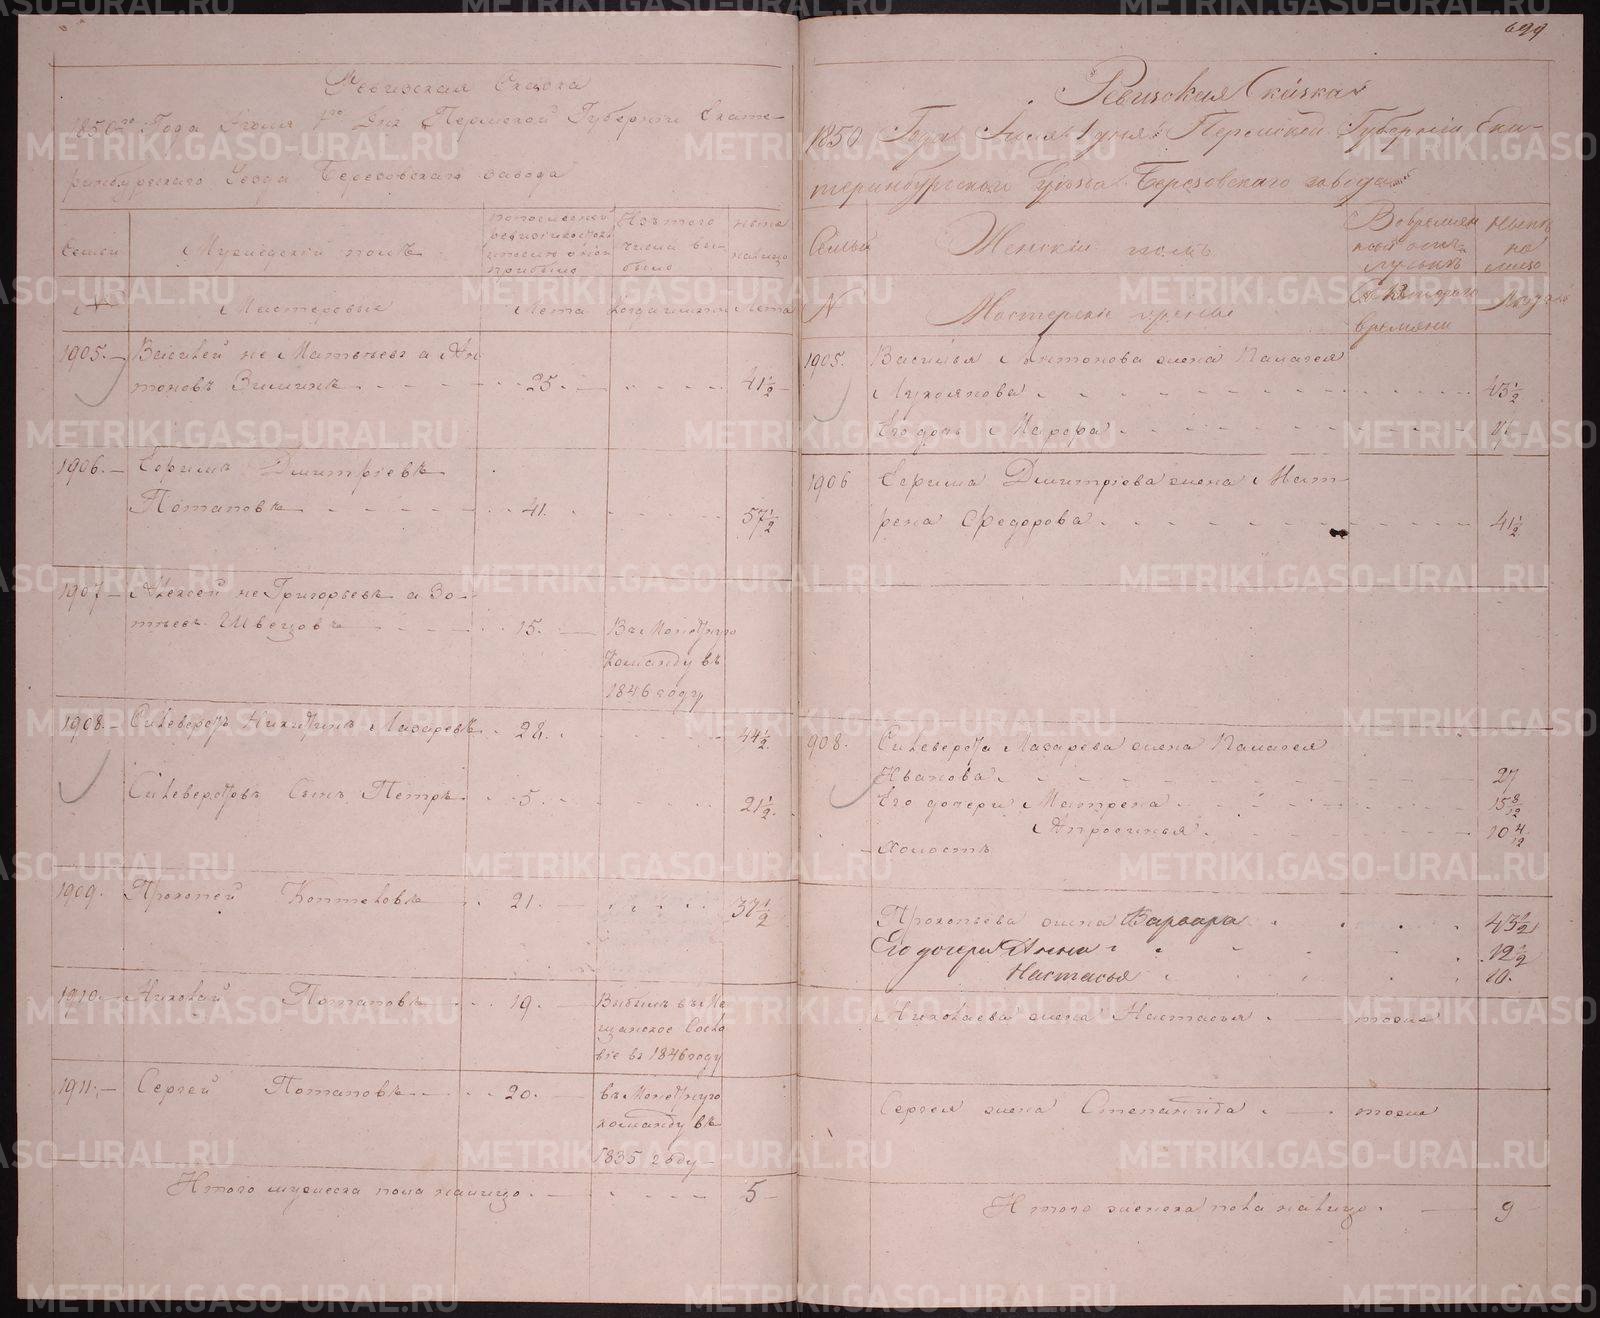 699
Ревизская Сказка
1850го Года Июля 1го Дня Пермской Губернiи Екате-
ринбургского Уезда Березовского завода
Семьи
Мужескiй полъ
по последней ревизiи состояло и после оной прибыло
Изъ того числа выбыло
ныне на лицо
№
Мастеровые
Лета
Когда именно
Лета
1905. Василей не Матвеевъ а Ан
тоновъ Зиминъ 25. 41 1/2
1906. Ефримъ Дмитрiевъ
Потаповъ 41. 57 1/2
1907 Алексей не Григорьевъ а Зо-
тиевъ Швецовъ 15. Въ Монетную
команду въ
1846 году
1908. Силеверстъ Никитинъ Лазаревъ 28. 44 1/2
Силеверстовъ Сынъ Петръ 5. 21 1/2
1909. Прокопей Коптеловъ 21. 37 1/2
1910. Николай Потаповъ 19. Выбылъ въ Ме
щанское Сосло
вiе въ 1846 году
1911. Сергей Потаповъ 20. въ Монетную
команду въ
1835 году
Итого мужеска пола налицо 5
Ревизская Сказка
1850 Года Июля 1 дня Пермской Губернiи Ека-
теринбургскаго Уезда Березовскаго завода
Семьи
Женскiй полъ
Во временной отлучкъ
Ныне на лицо
N
Мастерскiя жены
Съ котораго времяни
Лета
1905. Василья Антонова жена Палагея
Лукоянова 43 1/2
Его дочь Марфа
1906 Ефрима Дмитрiева жена Мат-
рена Федорова 41 1/2
908. Силеверста Лазарева жена Палагея
Иванова 27
Его дочери Матрена 15 8/12
Апросинья 10 4/12
Холостъ
Прокопьева жена Варвара 43 1/2
Его дочери Анна 12 1/2
Настасья 10.
Николаева жена Настасья тоже
Сергея жена Степанида тоже
Итого женска пола налицо 9
METRIKI.GASO-URAL.RU